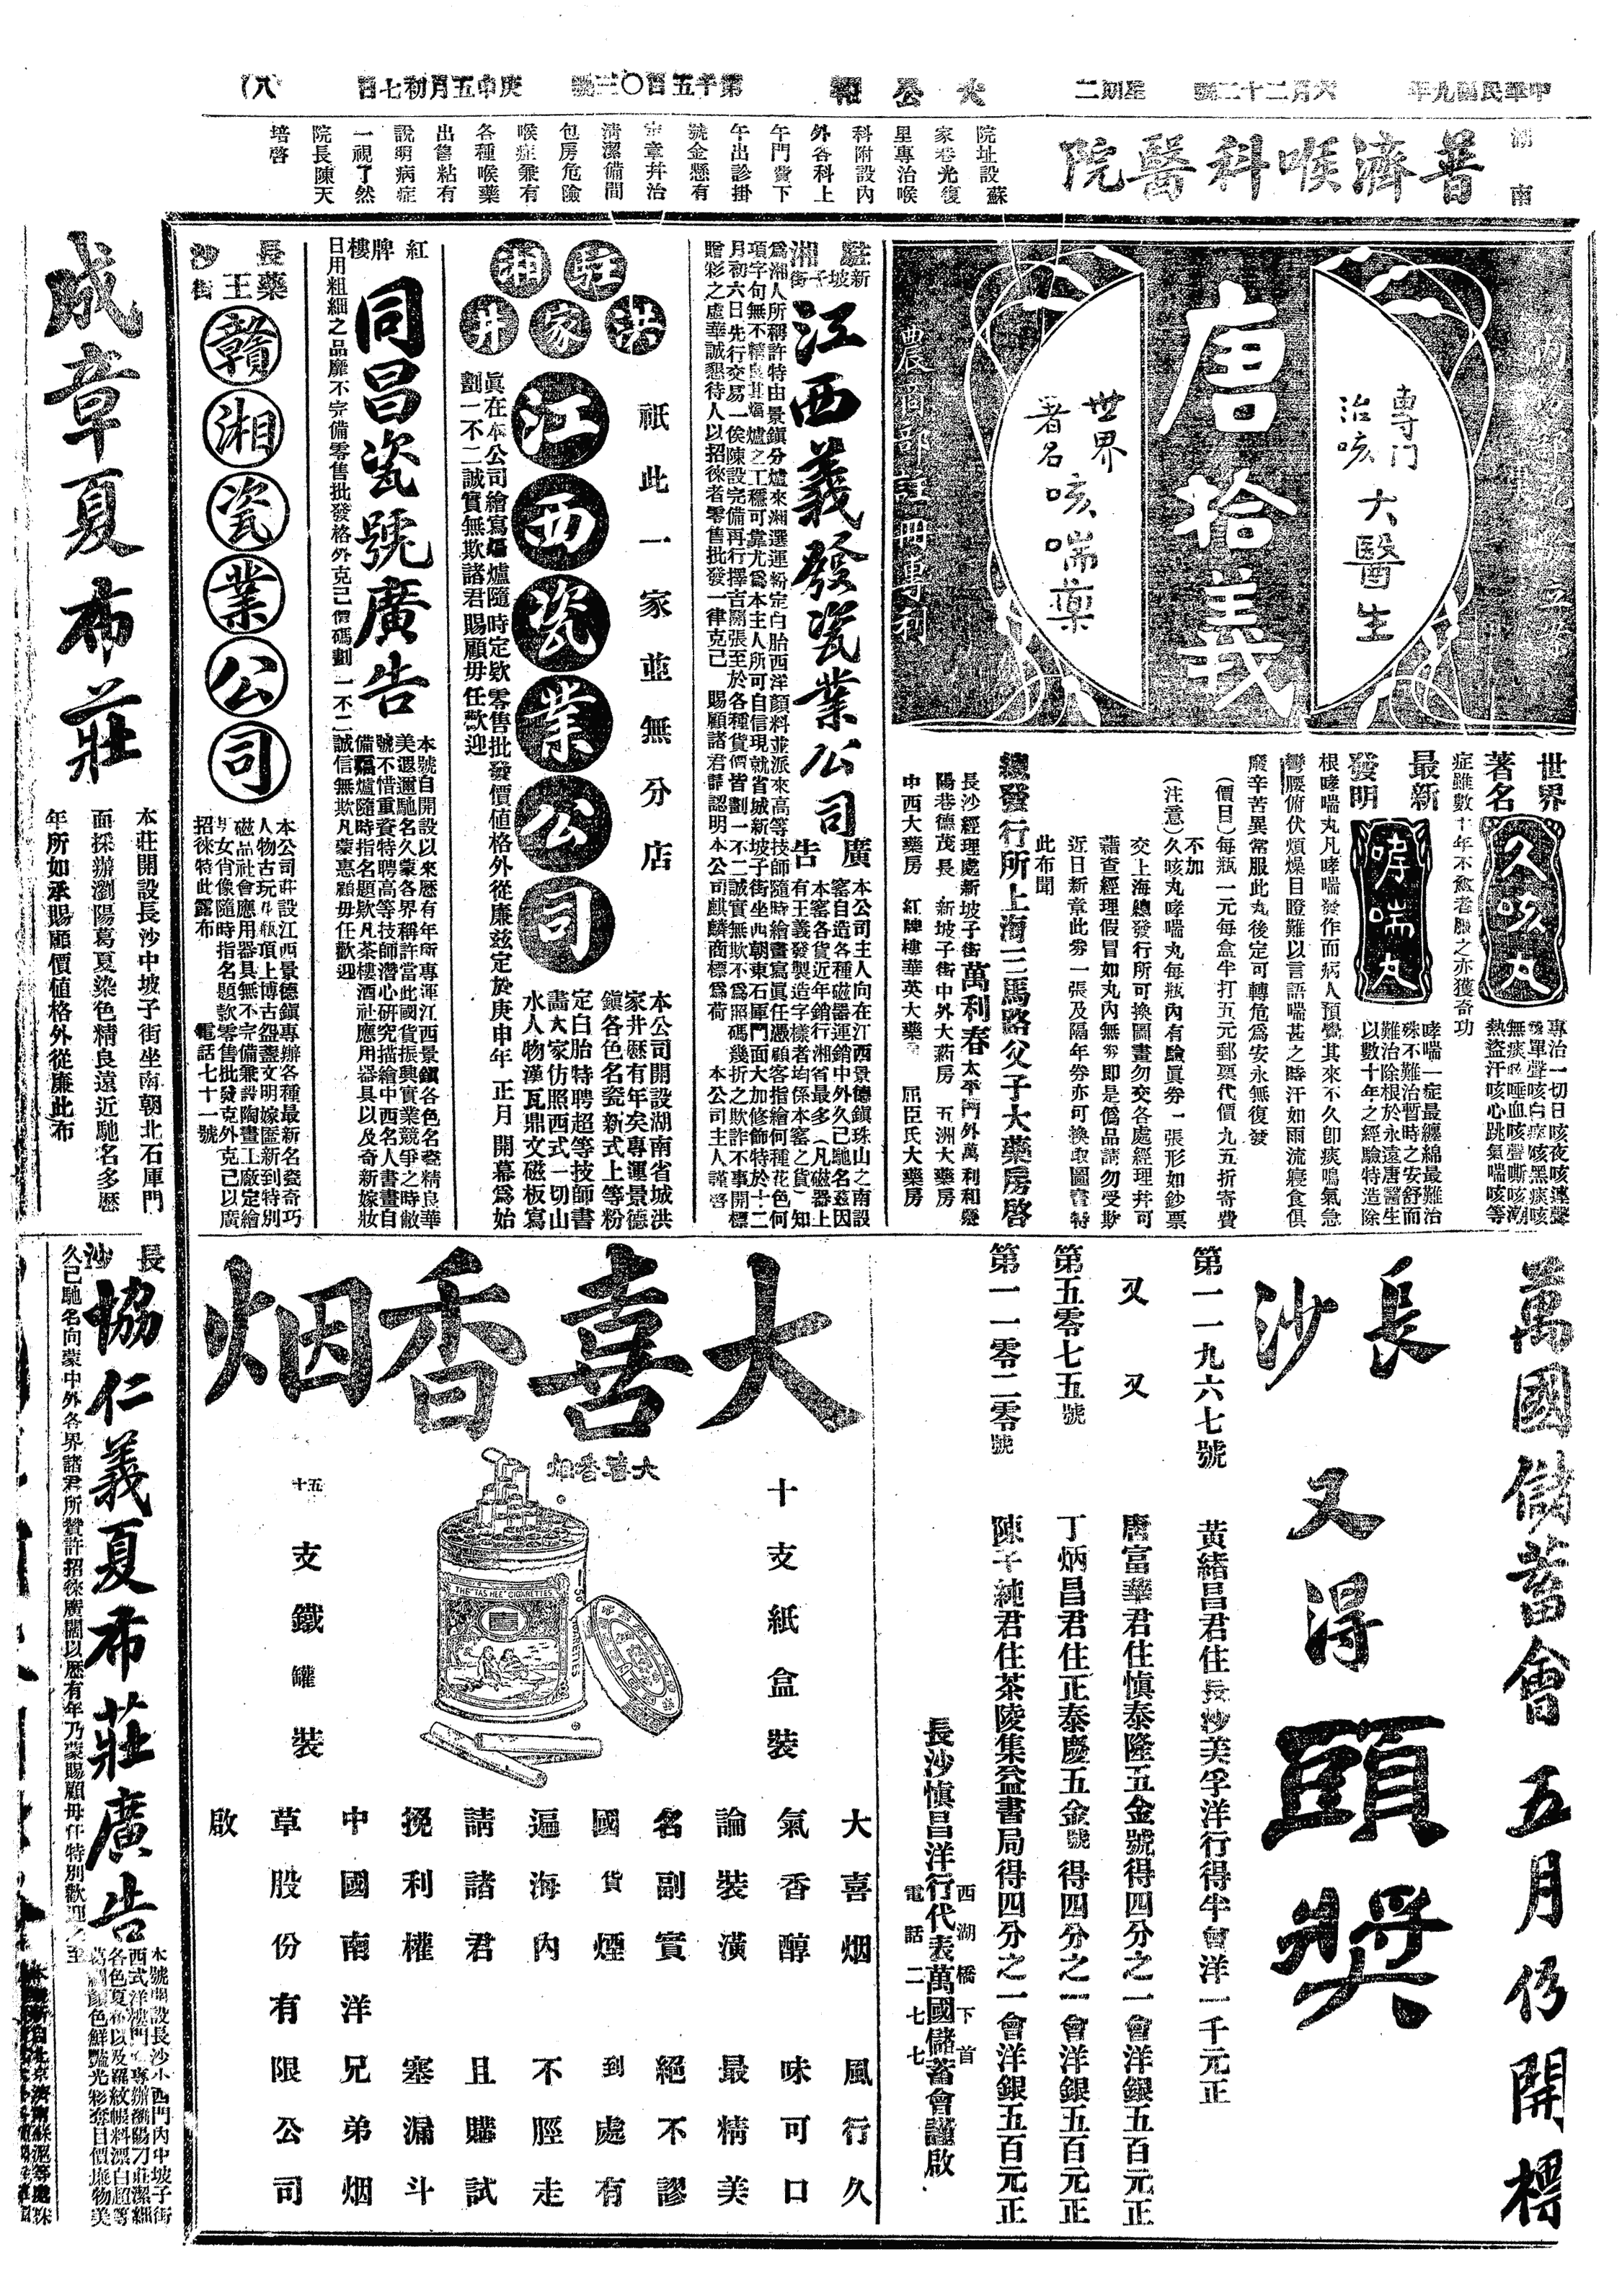 中華民國九年
六月二十二號
星期二
大公報
第千五百〇三號
庚申五月初七日
(八)
湖南
普濟喉科醫院
院址設蘇
家巷光復
里專治喉
科附設內
外各科上
午門費下
午出診掛
號金懸有
定章幷治
清潔備間
包房危險
喉症兼有
各種喉藥
出售粘有
說明病症
一視了然
院長陳天
培啓
唐拾義
專門治咳
大醫生
世界著名
咳喘藥
世界著名
久咳丸
專治一切日咳夜咳連聲
咳單聲咳白痰咳黑痰咳
無痰咳唾血咳聲嘶咳潮
熱盜汗咳心跳氣喘咳等
症雖數十年不愈者服之亦獲奇功
最新發明
哮喘丸
哮喘一症最纏綿最難治
殊不難治暫時之安舒而
難治除根於永遠唐醫生
以數十年之經驗特造除
根哮喘丸凡哮喘發作而病人預覺其來不久卽痰鳴氣急
彎腰俯伏煩燥目瞪難以言語喘甚之時汗如雨流寢食俱
廢辛苦異常服此丸後定可轉危爲安永無復發
(價目)每瓶一元每盒半打五元郵票代價九五折寄費
不加
(注意)久咳丸哮喘丸每瓶內有驗眞券一張形如鈔票
交上海總發行所可換圖畫勿交各處經理幷可
藉查經理假冒如丸內無券卽是僞品請勿受欺
近日新章此券一張及隔年券亦可換取圖畫特
此布聞
總發行所上海三馬路父子大藥房啓
長沙經理處新坡子街萬利春太平門外萬利和懸
陽巷德茂長 新坡子街中外大葯房 五洲大藥房
中西大藥房 紅牌樓華英大藥房 屈臣氏大藥房
駐湘
新坡子街
江西義發瓷業公司廣告
本公司主人向在江西景德鎭珠山之南設
窰自造各種磁器運銷中外久已馳名茲因
本窰各貨近年銷行湘省最多(凡磁器上
有王義發製造字樣者均係本窰之貨)知
爲湘人所稱許特由景鎭分爐來湘選運粉定白胎西洋顏料並派來高等技師隨時繪畫寫眞任憑顧客指繪何種花色何
項字句無不精良其爐之工穩可靠尤爲本主人所可自信現就省城新坡子街坐西朝東石庫門面大加修飾特於十二
月初六日先行交易一俟陳設完備再行擇吉開張至於各種貨價皆劃一不二誠實無欺不爲照碼幾折之欺詐不事開標
贈彩之虛華誠懇待人以招徠者零售批發一律克己 賜顧諸君詳認明本公司麒麟商標爲荷 本公司主人謹啓
駐湘
洪家井
江西瓷業公司
祇此一家並無分店
本公司開設湖南省城洪
家井歷有年矣專運景德
鎭各色名瓷新式上等粉
定白胎特聘超等技師書
畵大家仿照西式一切山
水人物漢瓦鼎文磁板寫
眞在本公司繪寫爐隨時定欵零售批發價值格外從廉茲定於庚申年 正月 開幕爲始
劃一不二誠實無欺諸君賜顧毋任歡迎
紅牌樓
同昌瓷號廣告
本號自開設以來歷有年所專運江西景鎭各色名瓷精良華
美遐邇馳名久蒙各界稱許當此國貨振興實業競爭之時敝
號不惜重資特聘高等技師潛心硏究描繪中西名人書畫自
備爐隨時指名題欵凡茶樓酒社應用器具以及奇新嫁妝
日用粗細之品靡不完備零售批發格外克己價碼劃一不二誠信無欺凡蒙惠顧毋任歡迎
長沙
藥王街
贛湘瓷業公司
本公司莊設江西景德鎭專辦各種最新名瓷奇巧
人物古玩瓶頂上博古盌盞文明嫁匳新到特別
磁品社會應用器具無不完備兼設陶畫工廠定繪
男女肖像隨時指名題款零售批發克外克己以廣
招徠特此露布 電話七十一號
成章夏布莊
本莊開設長沙中坡子街坐南朝北石庫門
面採辦瀏陽葛夏染色精良遠近馳名多歷
年所如承賜顧價值格外從廉此布
萬國儲蓄會五月份開標
長沙
又得頭獎
第一一九六七號 黃緒昌君住長沙美孚洋行得半會洋一千元正
又 又 唐富華君住愼泰隆五金號得四分之一會洋銀五百元正
第五零七五號 丁炳昌君住正泰慶五金號得四分之一會洋銀五百元正
第一一零二零號 陳子純君住茶陵集益書局得四分之一會洋銀五百元正
長沙愼昌洋行代表萬國儲蓄會謹啟
西湖橋下首
電話二七七
大喜香烟
大喜香烟
THE "TAS HEE" CIGARETTES
50
十支紙盒裝
五十支鐵罐裝
大喜烟 風行久
氣香醇 味可口
論裝潢 最精美
名副實 絕不謬
國貨煙 到處有
遍海內 不脛走
請諸君 且購試
挽利權 塞漏斗
中國南洋兄弟烟
草股份有限公司
啟
長沙
協仁義夏布莊廣告
本號開設長沙小西門內中坡子街
西式洋樓門面專辦瀏陽刀莊潔細
各色夏布以及羅紋帳料漂白超等
葛綢顏色鮮艷光彩奪目價廉物美
久已馳名向蒙中外各界諸君所贊許招徠廣闊以歷有年乃蒙賜顧毋任特別歡迎之至